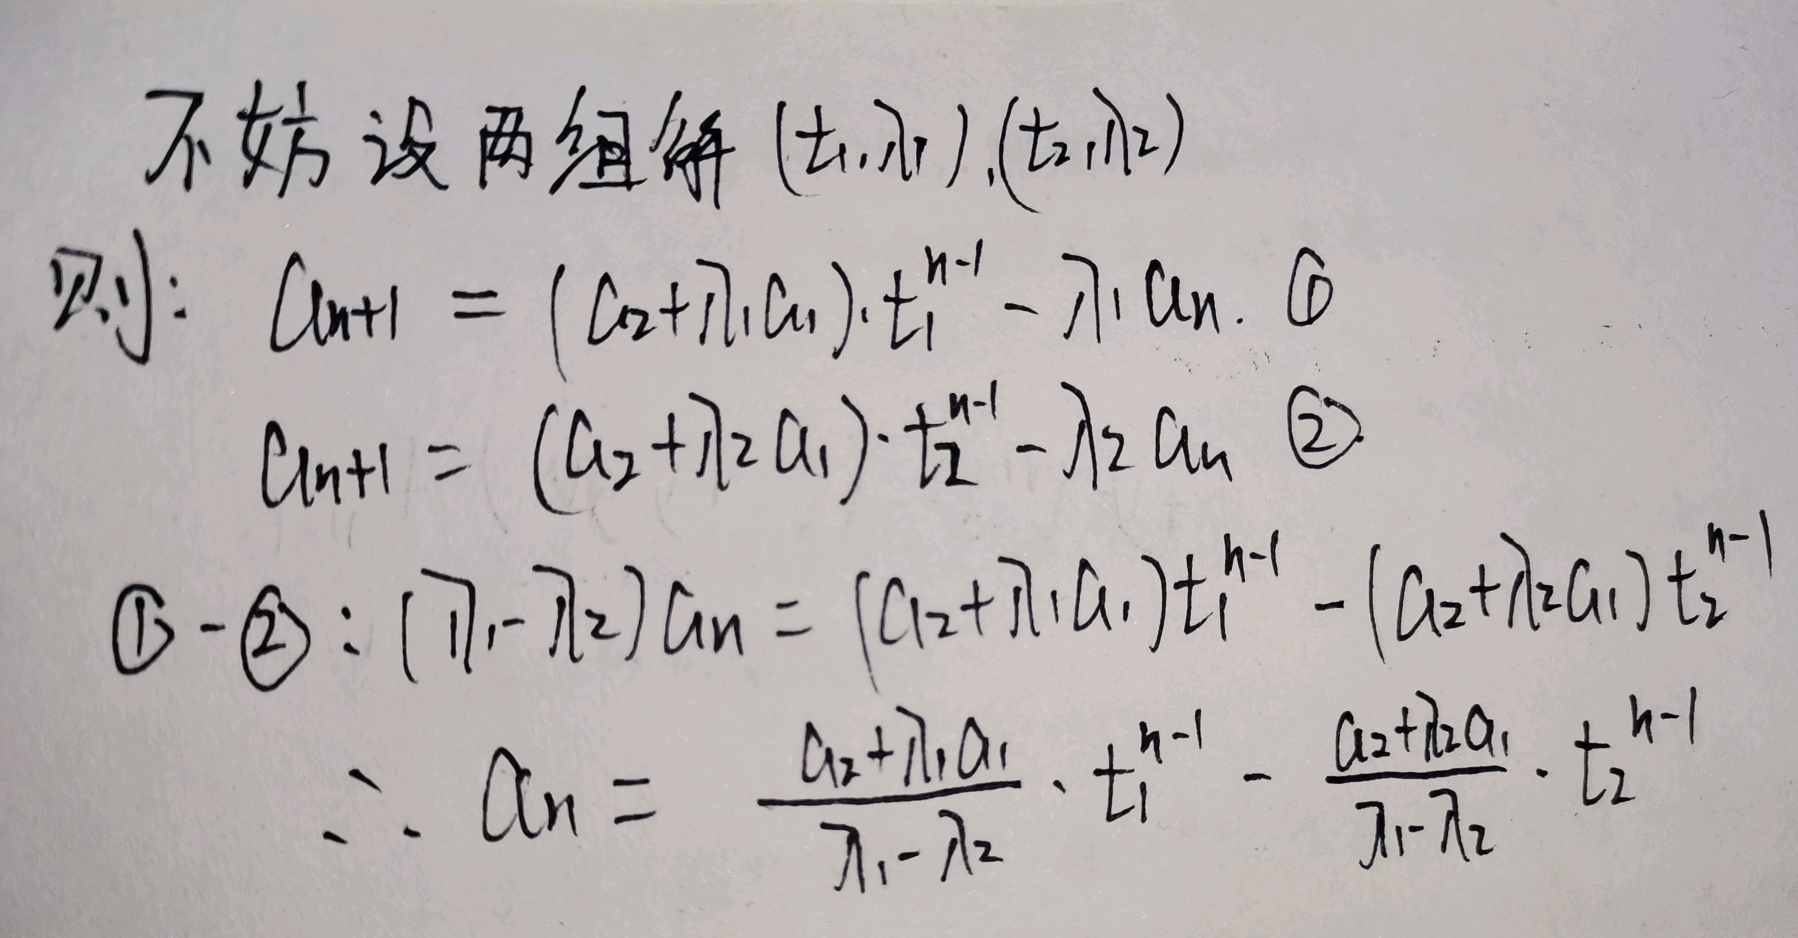 不妨设两组解 (t₁,λ₁),(t₂,λ₂)
则: aₙ₊₁ = (a₂+λ₁a₁)·t₁ⁿ⁻¹ - λ₁aₙ. ①
aₙ₊₁ = (a₂+λ₂a₁)·t₂ⁿ⁻¹ - λ₂aₙ ②
①-②: (λ₁-λ₂)aₙ = (a₂+λ₁a₁)t₁ⁿ⁻¹ - (a₂+λ₂a₁)t₂ⁿ⁻¹
∴ aₙ = \frac{a₂+λ₁a₁}{λ₁-λ₂}·t₁ⁿ⁻¹ - \frac{a₂+λ₂a₁}{λ₁-λ₂}·t₂ⁿ⁻¹